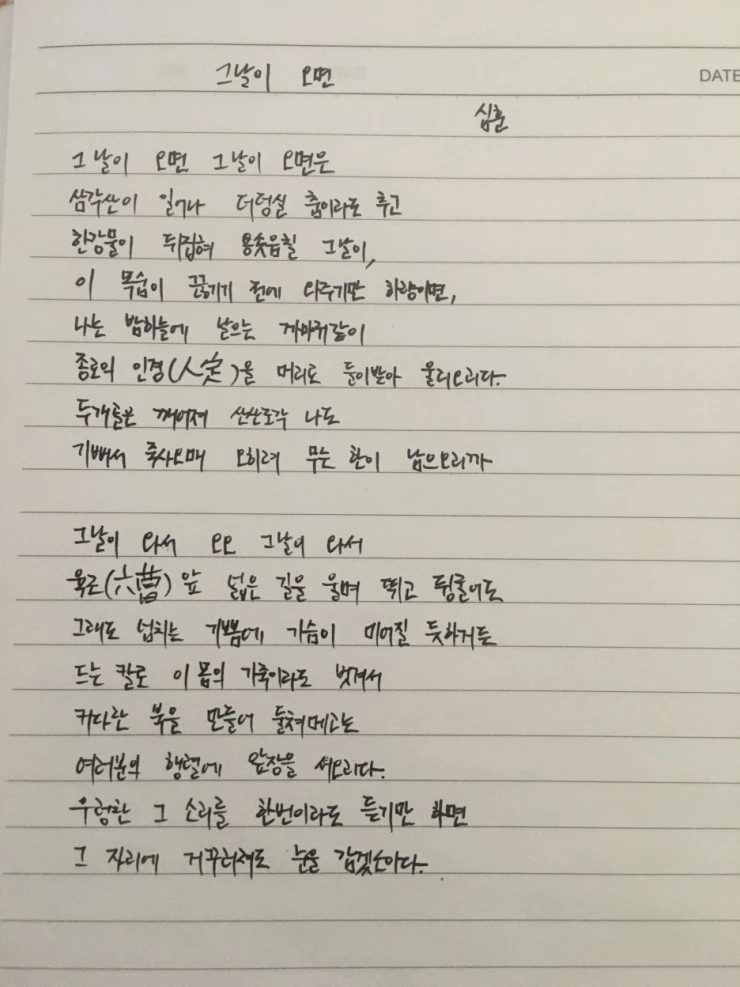 그날이 오면
DATE
심훈
그날이 오면 그날이 오면은
삼각산이 일어나 더덩실 춤이라도 추고
한강물이 뒤집혀 용솟음칠 그날이,
이 목숨이 끊기기 전에 와주기만 하량이면,
나는 밤하늘에 날으는 까마귀같이
종로의 인경(人定)을 머리로 들이받아 울리오리다.
두개골은 깨어져 산산조각 나도
기뻐서 죽사오매 오히려 무슨 한이 남으오리까
그날이 와서 오오 그날이 와서
육조(六曹) 앞 넓은 길을 울며 뛰고 뒹굴어도
그래도 넘치는 기쁨에 가슴이 미어질 듯하거든
드는 칼로 이 몸의 가죽이라도 벗겨서
커다란 북을 만들어 둘쳐메고는
여러분의 행렬에 앞장을 서오리다.
우렁찬 그 소리를 한번이라도 듣기만 하면
그 자리에 거꾸러져도 눈을 감겠소이다.